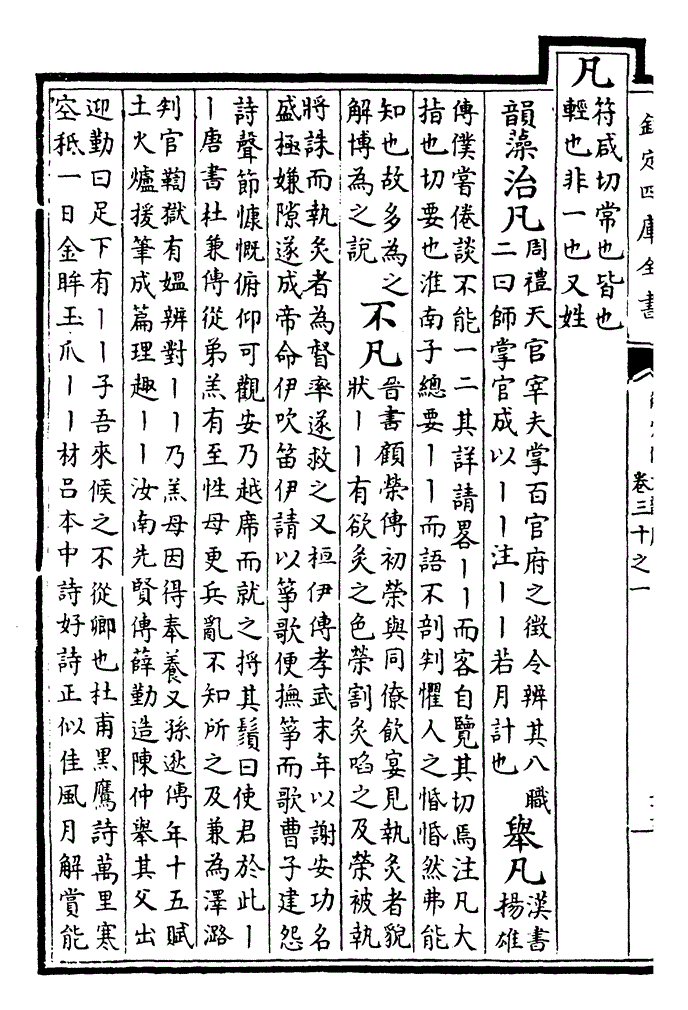 欽定四庫全書
卷三十之一
凡
符咸切常也皆也
輕也非一也又姓
韻藻治凡
周禮天官宰夫掌百官府之徵令辨其八職
二曰師掌官成以丨丨注丨丨若月計也
舉凡
漢書
揚雄
傳僕嘗倦談不能一二其詳請畧丨丨而客自覽其切焉注凡大
指也切要也淮南子總要丨丨而語不剖判懼人之惛惛然弗能
知也故多為之
解博為之說
不凡
晉書顧榮傳初榮與同僚飲宴見執炙者貌
狀丨丨有欲炙之色榮割炙啗之及榮被執
將誅而執炙者為督率遂救之又桓伊傳孝武末年以謝安功名
盛極嫌隙遂成帝命伊吹笛伊請以箏歌便撫箏而歌曹子建怨
詩聲節慷慨俯仰可觀安乃越席而就之捋其鬚曰使君於此丨
丨唐書杜兼傳從弟羔有至性母更兵亂不知所之及兼為澤潞
判官鞫獄有媼辨對丨丨乃羔母因得奉養又孫逖傳年十五賦
土火爐援筆成篇理趣丨丨汝南先賢傳薛勤造陳仲舉其父出
迎勤曰足下有丨丨子吾來候之不從卿也杜甫黑鷹詩萬里寒
空秪一日金眸玉爪丨丨材呂本中詩好詩正似佳風月解賞能